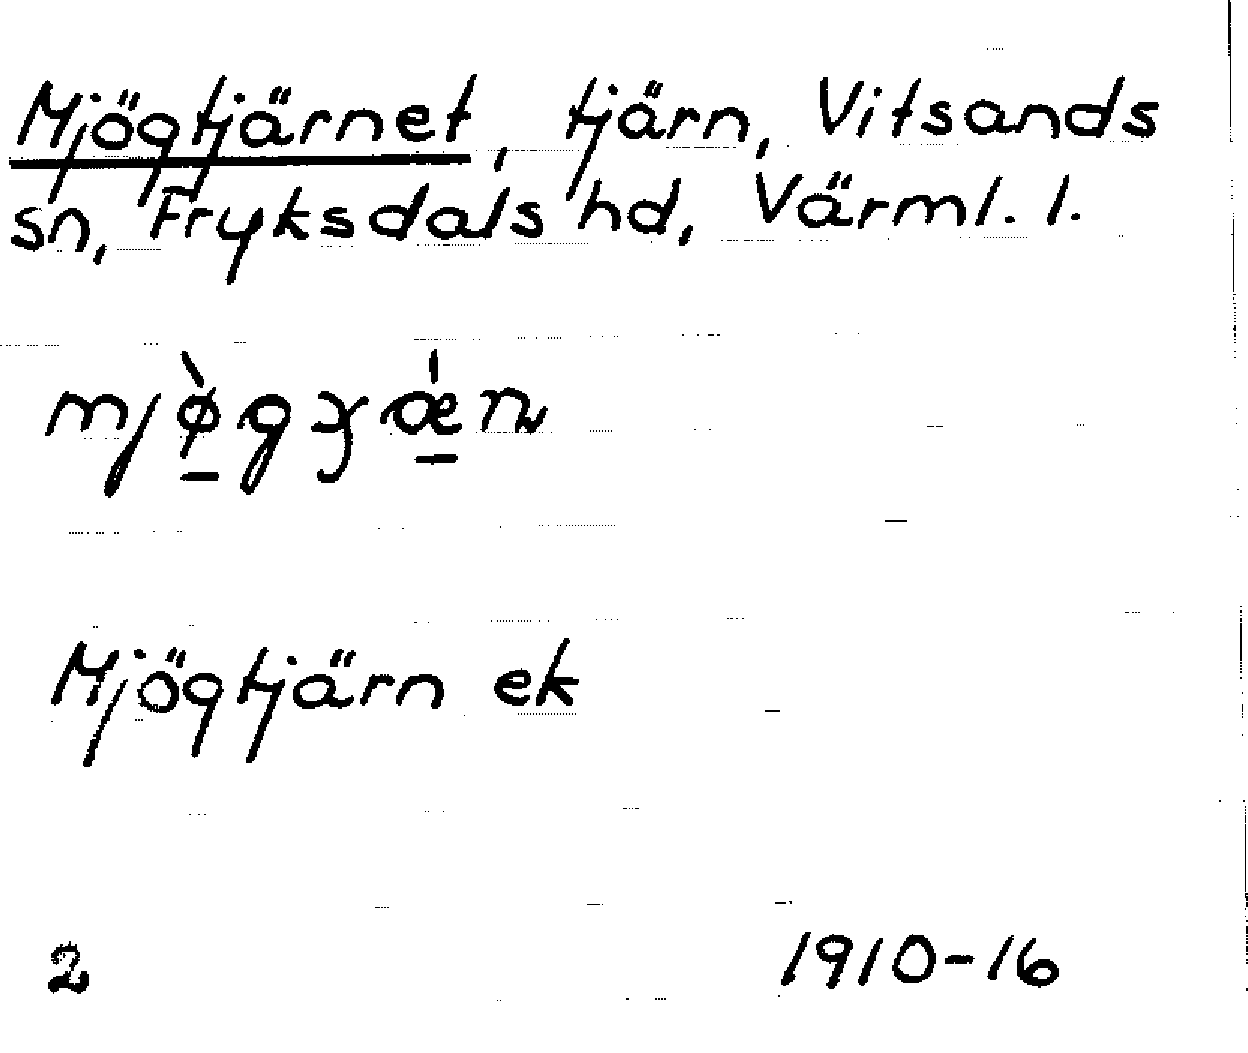 Mjögtjärnet, tjärn, Vitsands
sn, Fryksdals hd, Värml. l.
Mjögtjärn ek
2 1910-16